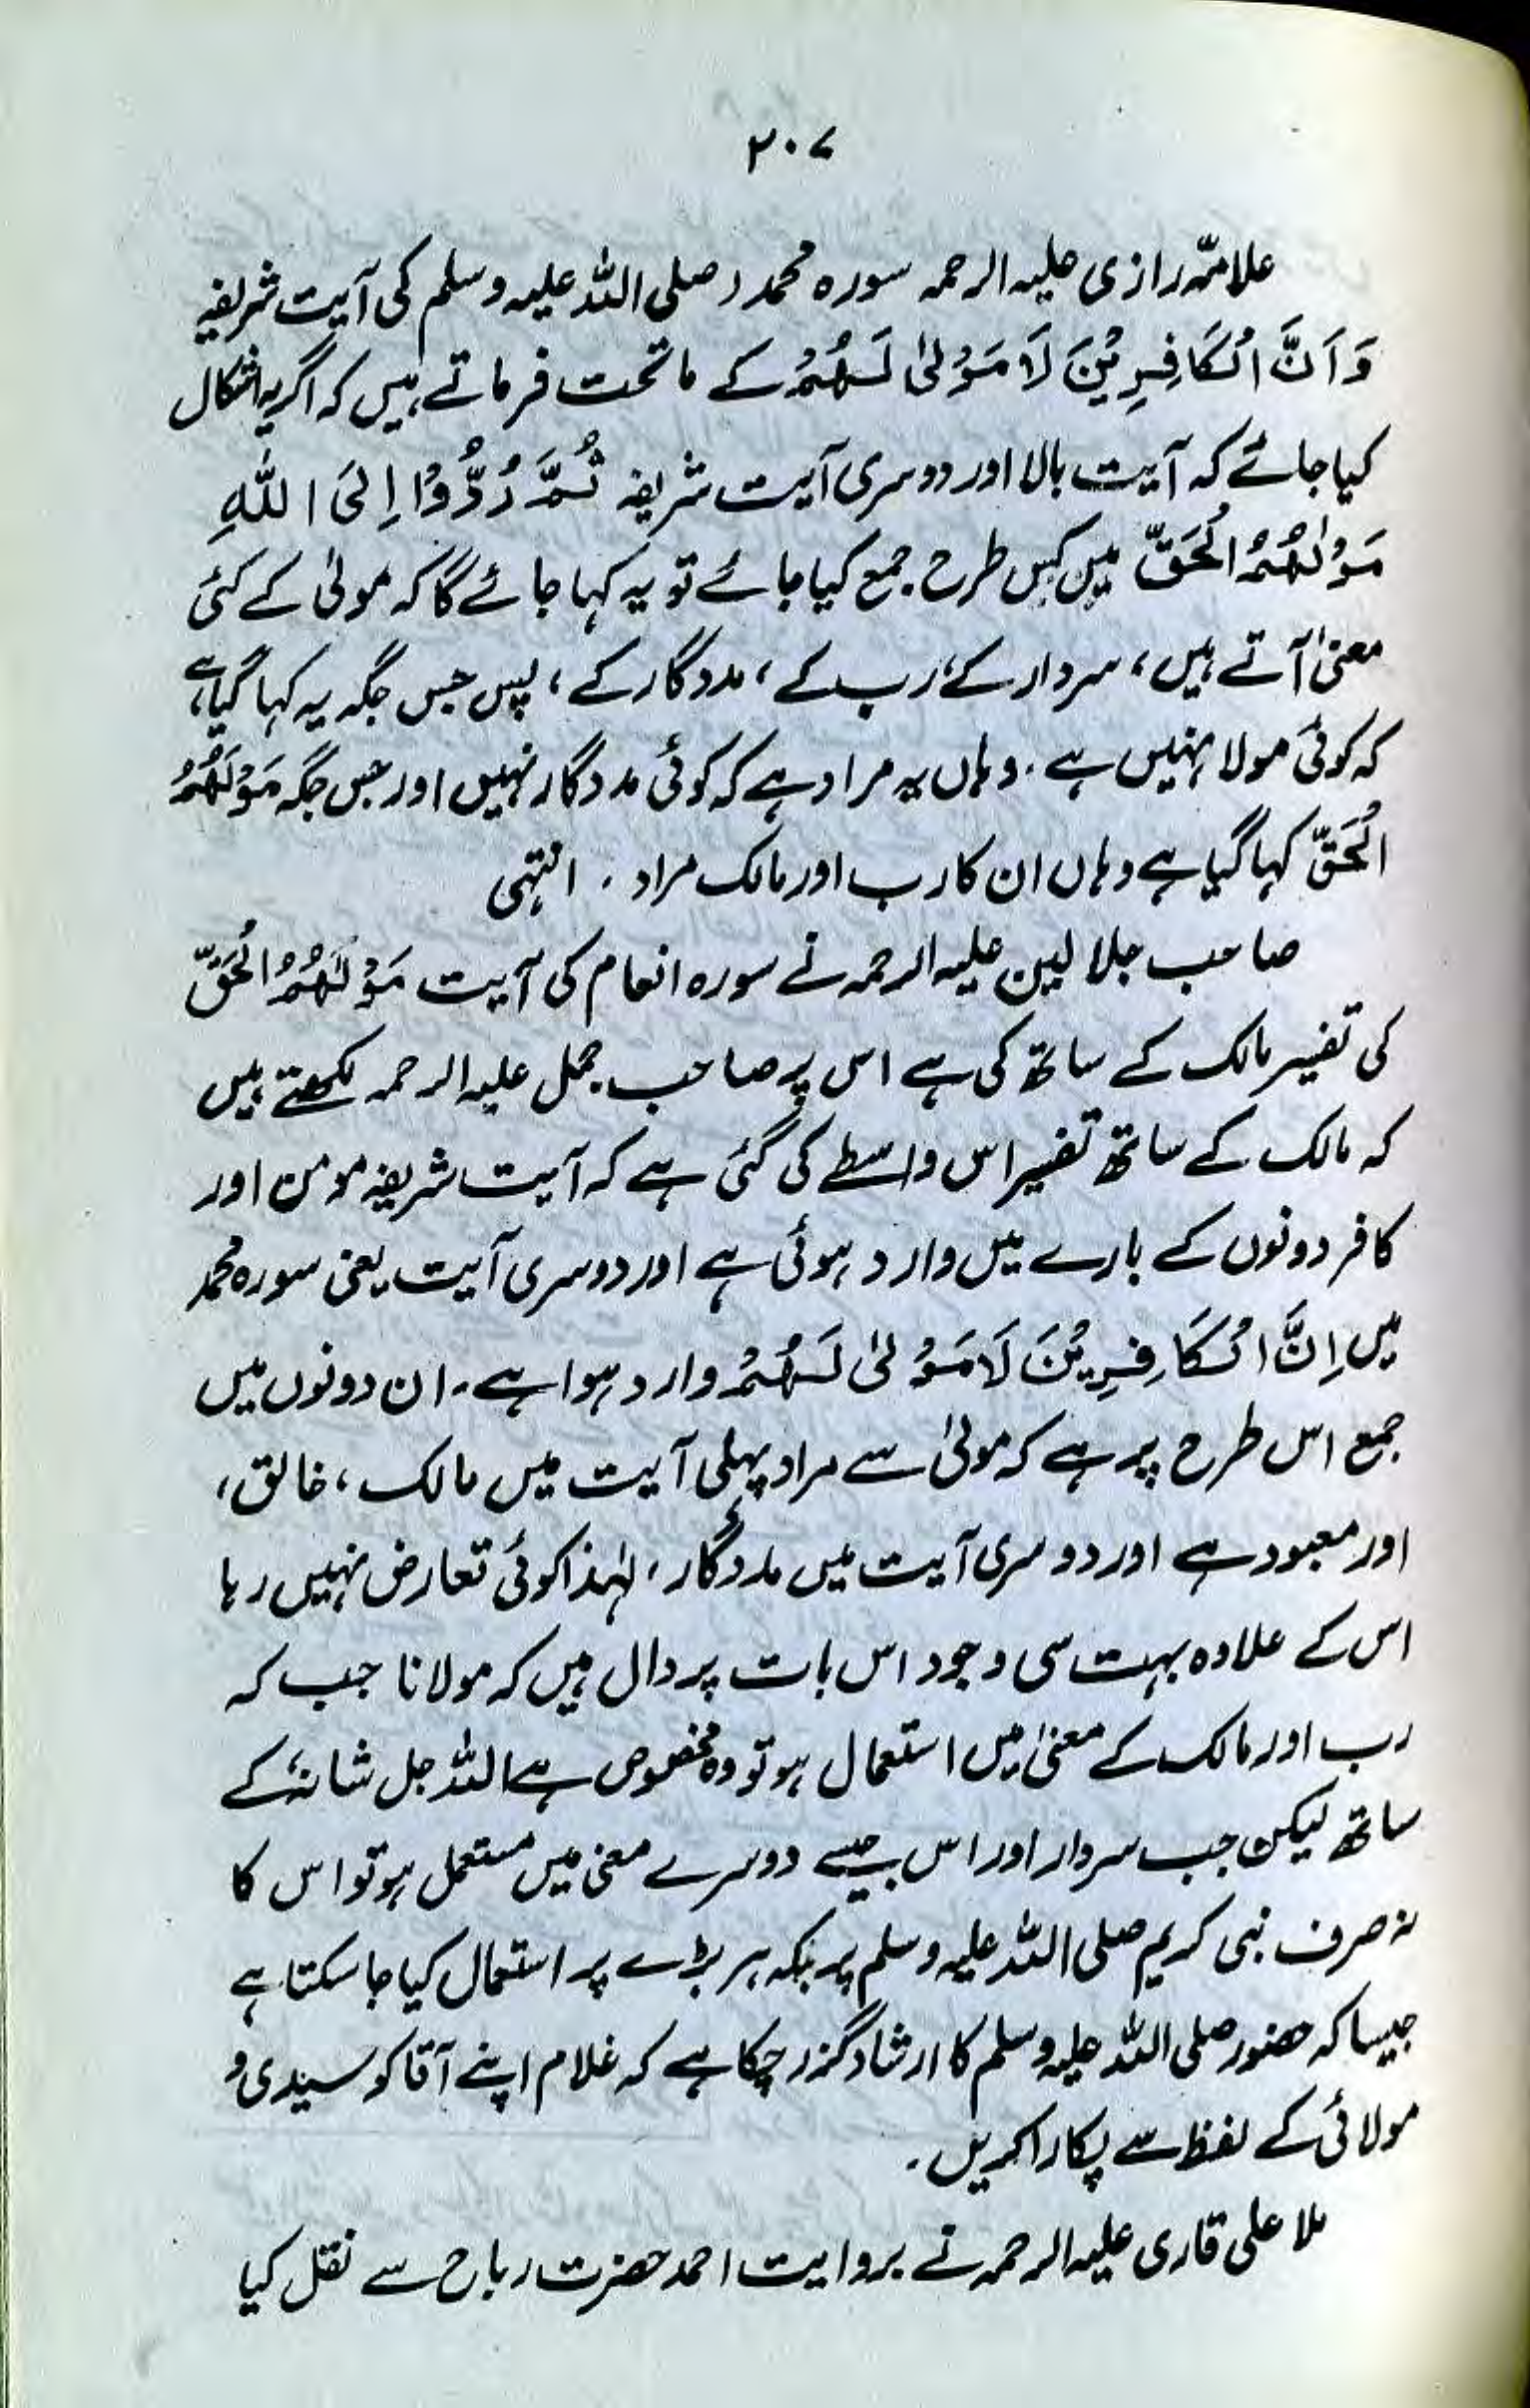 ۲۰۷
علامّہ رازی علیہ الرحمہ سورہ محمد (صلی اللہ علیہ وسلم کی آیت شریفہ
وَاَنَّ الْکَافِرِیْنَ لَا مَوْلیٰ لَھُمْ کے ماتحت فرماتے ہیں کہ اگر یہ اشکال
کیا جائے کہ آیت بالا اور دوسری آیت شریفہ ثُمَّ رُدُّوْا اِلیَ اللہِ
مَوْلٰھُمُ الْحَقِّ میں کس طرح جمع کیا جائے تو یہ کہا جائے گا کہ مولیٰ کے کئی
معنیٰ آتے ہیں، سردار کے، رب کے، مددگار کے، پس جس جگہ یہ کہا گیا ہے
کہ کوئی مولا نہیں ہے. وہاں یہ مراد ہے کہ کوئی مددگار نہیں اور جس جگہ مَوْلَھُمُ
الْحَقِّ کہا گیا ہے وہاں ان کا رب اور مالک مراد. انتہی
صاحب جلالین علیہ الرحمہ نے سورہ انعام کی آیت مَوْلٰھُمُ الْحَقِّ
کی تفسیر مالک کے ساتھ کی ہے اس پر صاحب جمل علیہ الرحمہ لکھتے ہیں
کہ مالک کے ساتھ تفسیر اس واسطے کی گئی ہے کہ آیت شریفہ مومن اور
کافر دونوں کے بارے میں وارد ہوئی ہے اور دوسری آیت یعنی سورہ محمد
میں اِنَّ الْکَافِرِیْنَ لَا مَوْلیٰ لَھُمْ وارد ہوا ہے۔ ان دونوں میں
جمع اس طرح پر ہے کہ مولیٰ سے مراد پہلی آیت میں مالک، خالق،
اور معبود ہے اور دوسری آیت میں مددگار، لہٰذا کوئی تعارض نہیں رہا
اس کے علاوہ بہت سی وجوہ اس بات پر دال ہیں کہ مولانا جب کہ
رب اور مالک کے معنیٰ میں استعمال ہو تو وہ مخصوص ہے اللہ جل شانہٗ کے
ساتھ لیکن جب سردار اور اس جیسے دوسرے معنی میں مستعمل ہو تو اس کا
نہ صرف نبی کریم صلی اللہ علیہ وسلم پر بلکہ ہر بڑے پر استعمال کیا جا سکتا ہے
جیسا کہ حضور صلی اللہ علیہ وسلم کا ارشاد گزر چکا ہے کہ غلام اپنے آقا کو سیدی و
مولائی کے لفظ سے پکارا کریں.
ملا علی قاری علیہ الرحمہ نے بروایت احمد حضرت رباح سے نقل کیا